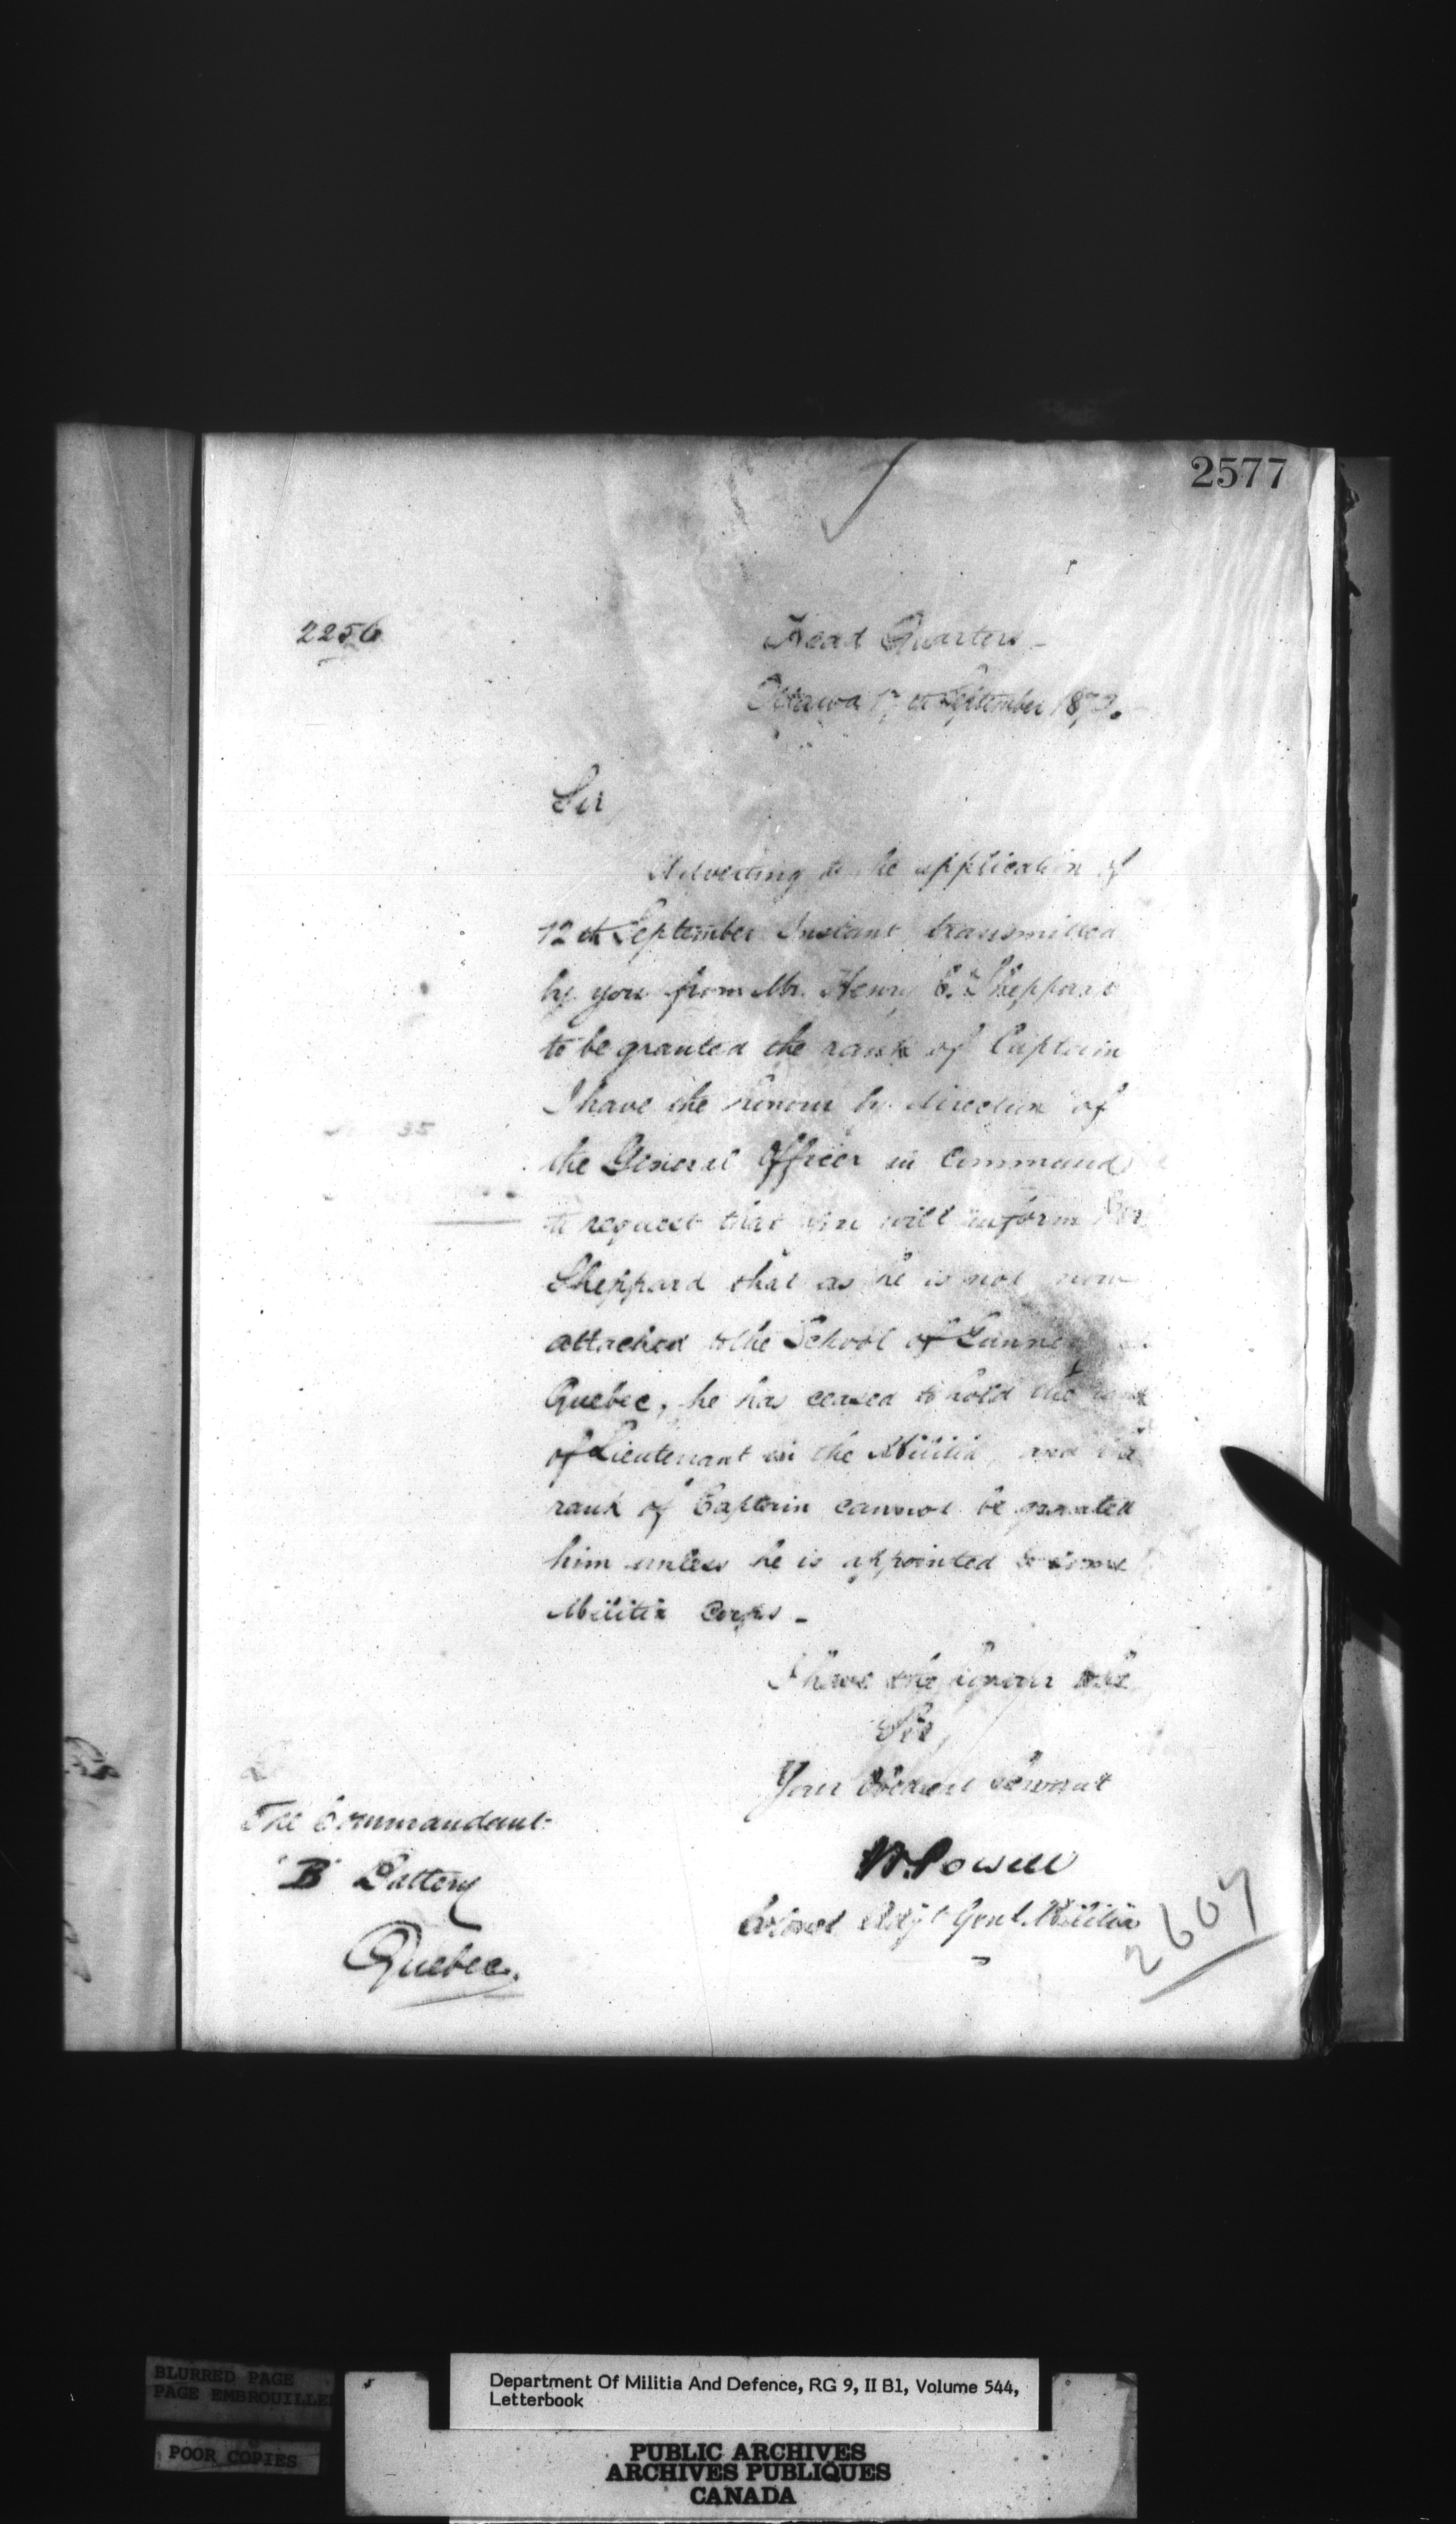 2577
2256
Head Quarters -
Ottawa 17th September 187
Sir
Adverting to the application of
12th September Instant transmitted
by you from Mr. Henry C. Sheppard
to be granted the rank of Captain
I have the honour by direction of
the General Officer in Command
to request that you will inform Mr
Sheppard that as he is not now
attached to the School of Gunnery
Quebec, he has ceased to hold the rank
of Lieutenant in the Militia, and the
rank of Captain cannot be granted
him unless he is appointed to some
Militia Corps -
I have the honour to be
Sir,
Your Obedient Servant
W. Powell
Colonel Adjt Genl. Militia
The Commandant
"B" Battery
Quebec.
2607
35
BLURRED PAGE
PAGE EMBROUILLEE
POOR COPIES
Department Of Militia And Defence, RG 9, II B1, Volume 544,
Letterbook
PUBLIC ARCHIVES
ARCHIVES PUBLIQUES
CANADA